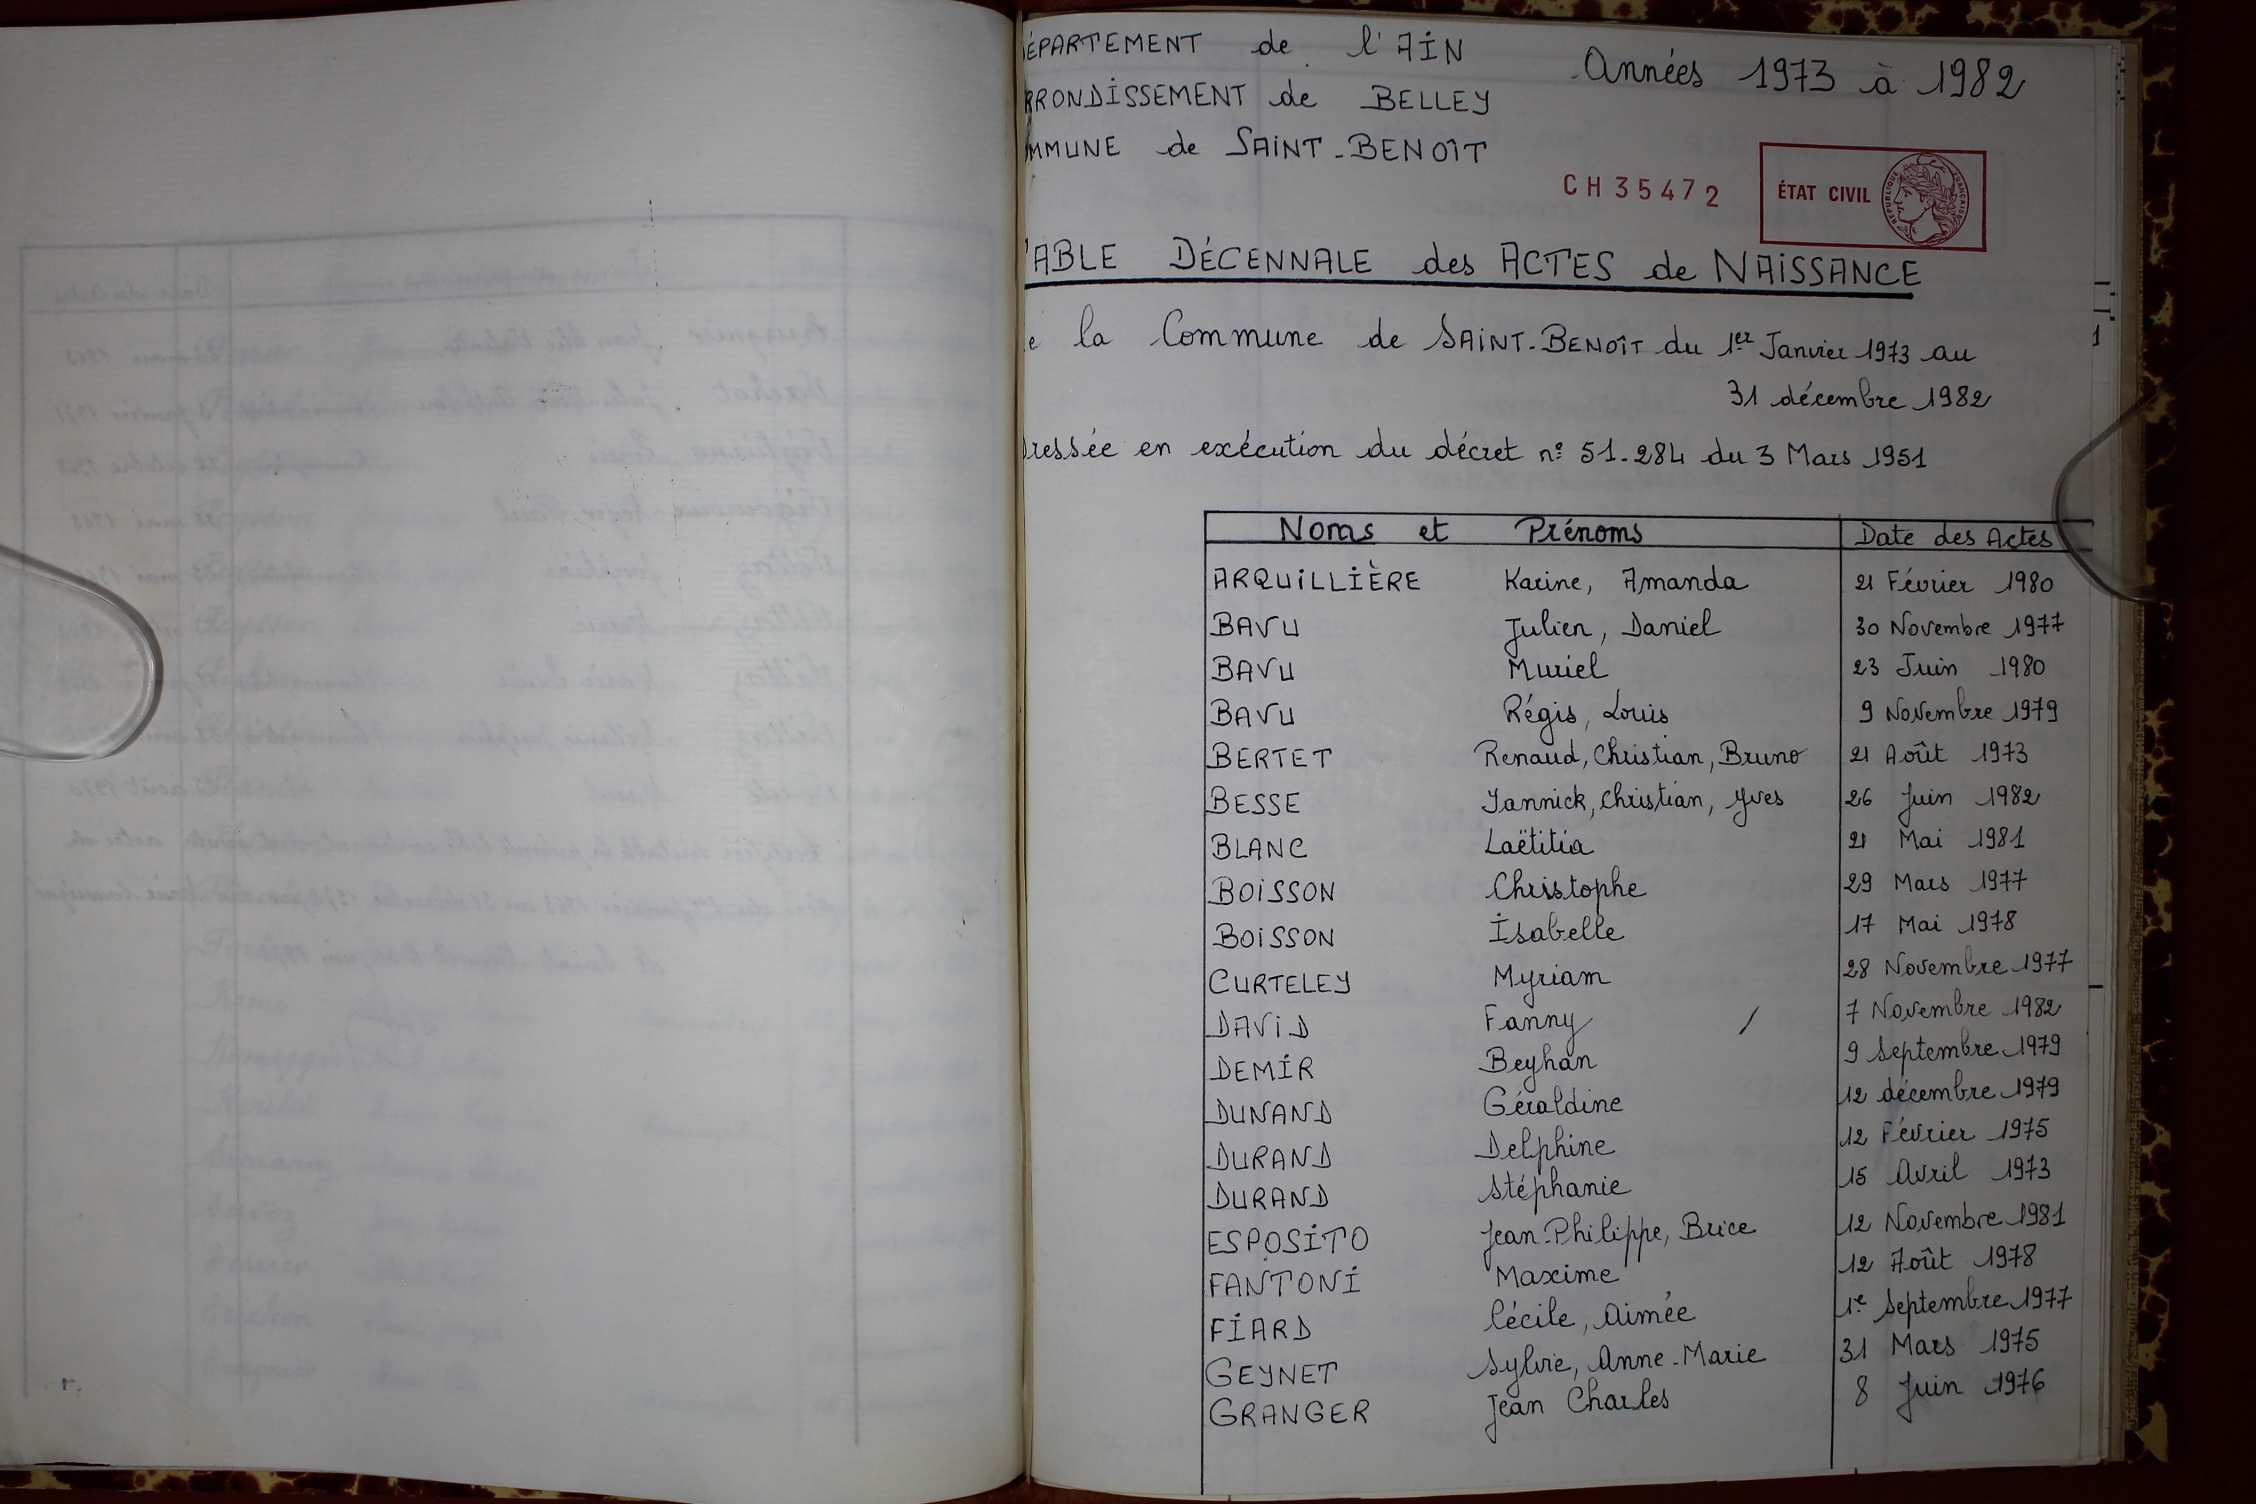 DÉPARTEMENT de l'AIN
Années 1973 à 1982
ARRONDISSEMENT de BELLEY
COMMUNE de SAINT-BENOÎT
CH35472
ÉTAT CIVIL
RÉPUBLIQUE FRANÇAISE
TABLE DÉCENNALE des ACTES de NAISSANCE
de la Commune de SAINT-BENOÎT du 1er Janvier 1973 au
31 décembre 1982
Dressée en exécution du décret n° 51.284 du 3 Mars 1951
Noms et Prénoms Date des Actes
ARQUILLIÈRE Karine, Amanda 21 Février 1980
BAVU Julien, Daniel 30 Novembre 1977
BAVU Muriel 23 Juin 1980
BAVU Régis, Louis 9 Novembre 1979
BERTET Renaud, Christian, Bruno 21 Août 1973
BESSE Yannick, Christian, Yves 26 Juin 1982
BLANC Laëtitia 21 Mai 1981
BOISSON Christophe 29 Mars 1977
BOISSON Isabelle 17 Mai 1978
CURTELEY Myriam 28 Novembre 1977
DAVID Fanny / 7 Novembre 1982
DEMIR Beyhan 9 Septembre 1979
DUNAND Géraldine 12 décembre 1979
DURAND Delphine 12 Février 1975
DURAND Stéphanie 15 Avril 1973
ESPOSITO Jean-Philippe, Brice 12 Novembre 1981
FANTONI Maxime 12 Août 1978
FIARD Cécile, Aimée 1e Septembre 1977
GEYNET Sylvie, Anne-Marie 31 Mars 1975
GRANGER Jean Charles 8 Juin 1976